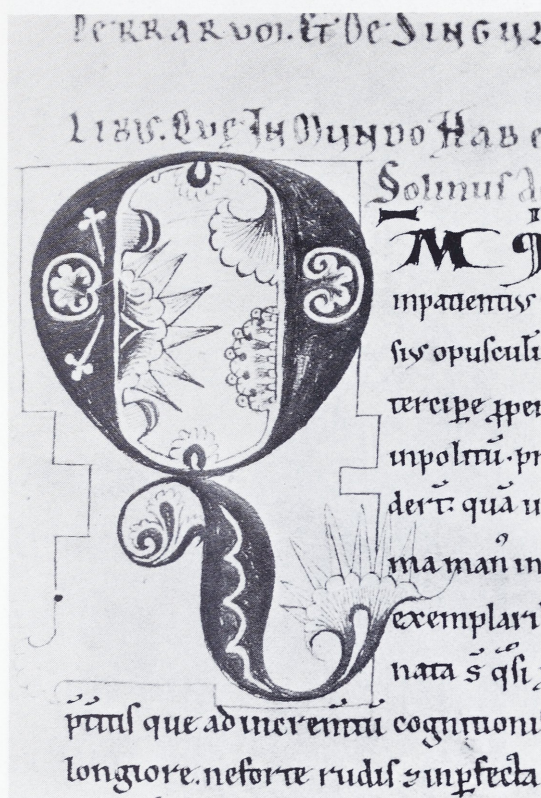 TERRARVM. ET DE SINGUL
LIBVS. QUE IN MUNDO HABE
Solinus A
Q M
inpatientius
sius opusculū
tercipe ꝓper
inpolitū. pr
dert: quā i
ma man᷒ in
exemplari
nata s̄ q̄si
p̄titis que ad incremtū cognitioni
longiore. neforte rudis ⁊ inꝑfecta